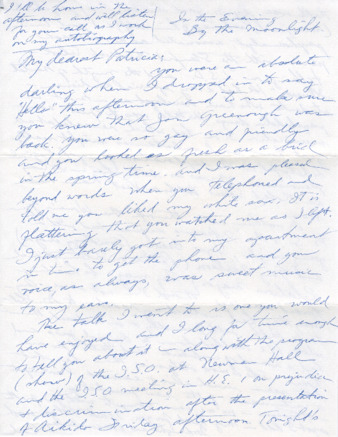 I'll be home in the
afternoon and will listen
for your call as I work
on my autobiography
In the Evening
By the Moonlight
My dearest Patricia:
you were an absolute
darling when I dropped in to say
"Hello" this afternoon and to make sure
you knew that Jon Greenough was
back. you were so gay and friendly
and you looked as fresh as a bird
in the spring time. and I was pleased
beyond words when you telephoned and
told me you liked my white sox. It is
flattering that you watched me as I left.
I just barely got into my apartment
in time to get the phone and your
voice, as always, was sweet music
to my ears.
The talk I went to is one you would
have enjoyed and I long for time enough
to tell you about it - along with the program
(show) of the I.S.O. at Newman Hall
and the I.S.O meeting in H.E. 1 on prejudice
& discrimination after the presentation
of Aikido Friday afternoon. Tonight's